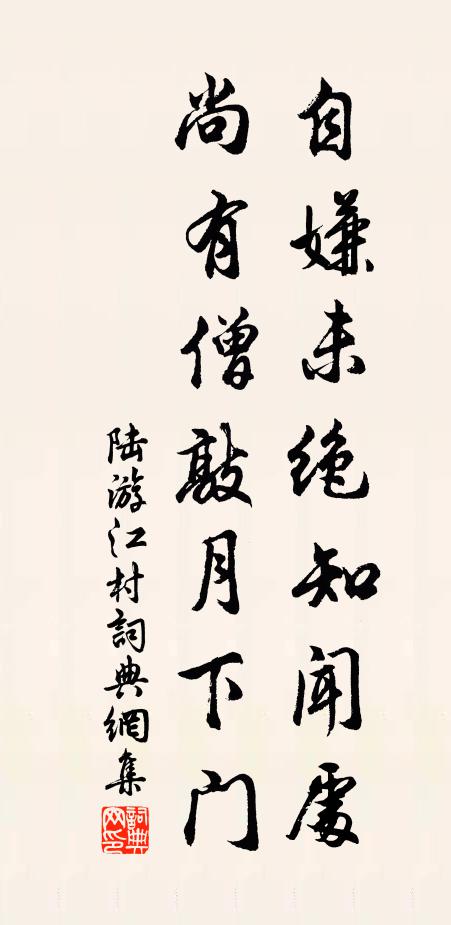 自嫌未绝知闻處
尚有僧敲月下门
陆游江村詞典網集
詞典网印